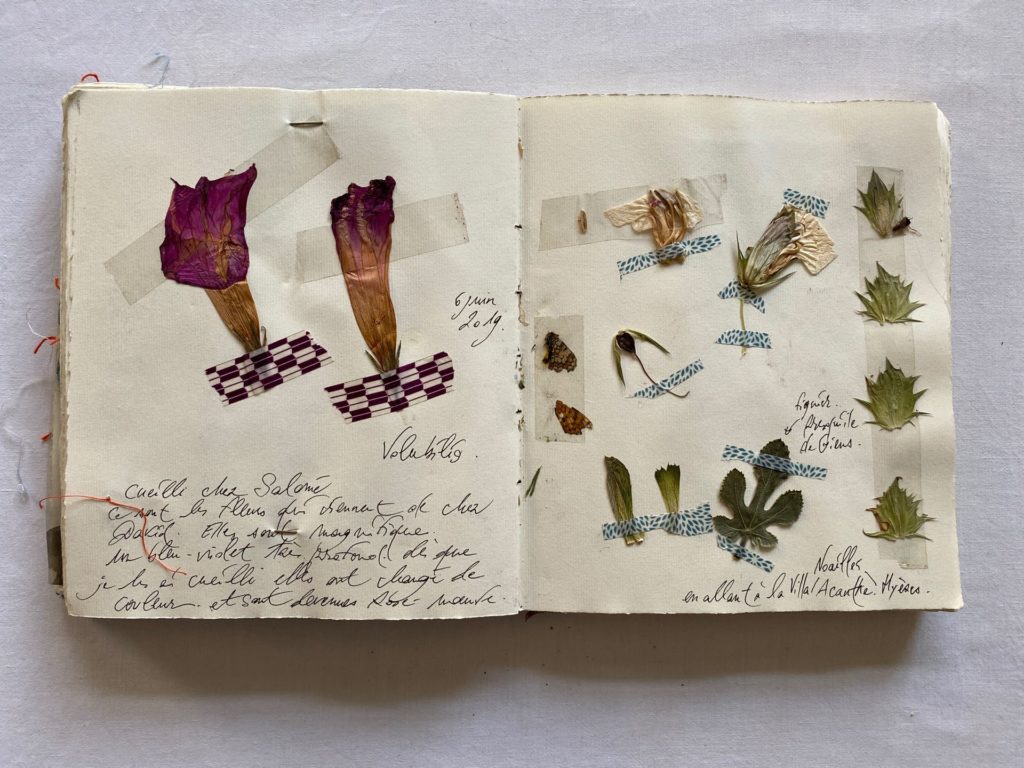 6 juin
2019.
Volubilis.
cueilli chez Salomé
ce sont les fleurs qui viennent de chez
David. Elles sont magnifique.
un bleu-violet très profond dès que
je les ai cueilli elles ont changé de
couleur. et sont devenues rose mauve.
figuier.
Presqu'île
de Giens.
Noailles
en allant à la Villa Acanthe. Hyères.